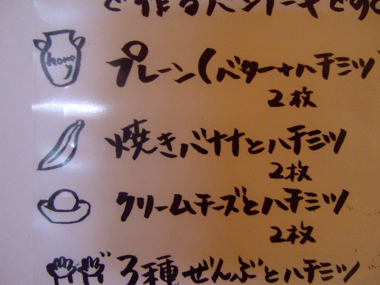 で作るパンケーキです
honey
プレーン(バター+ハチミツ
2枚
焼きバナナとハチミツ
2枚
クリームチーズとハチミツ
2枚
3種ぜんぶとハチミツ